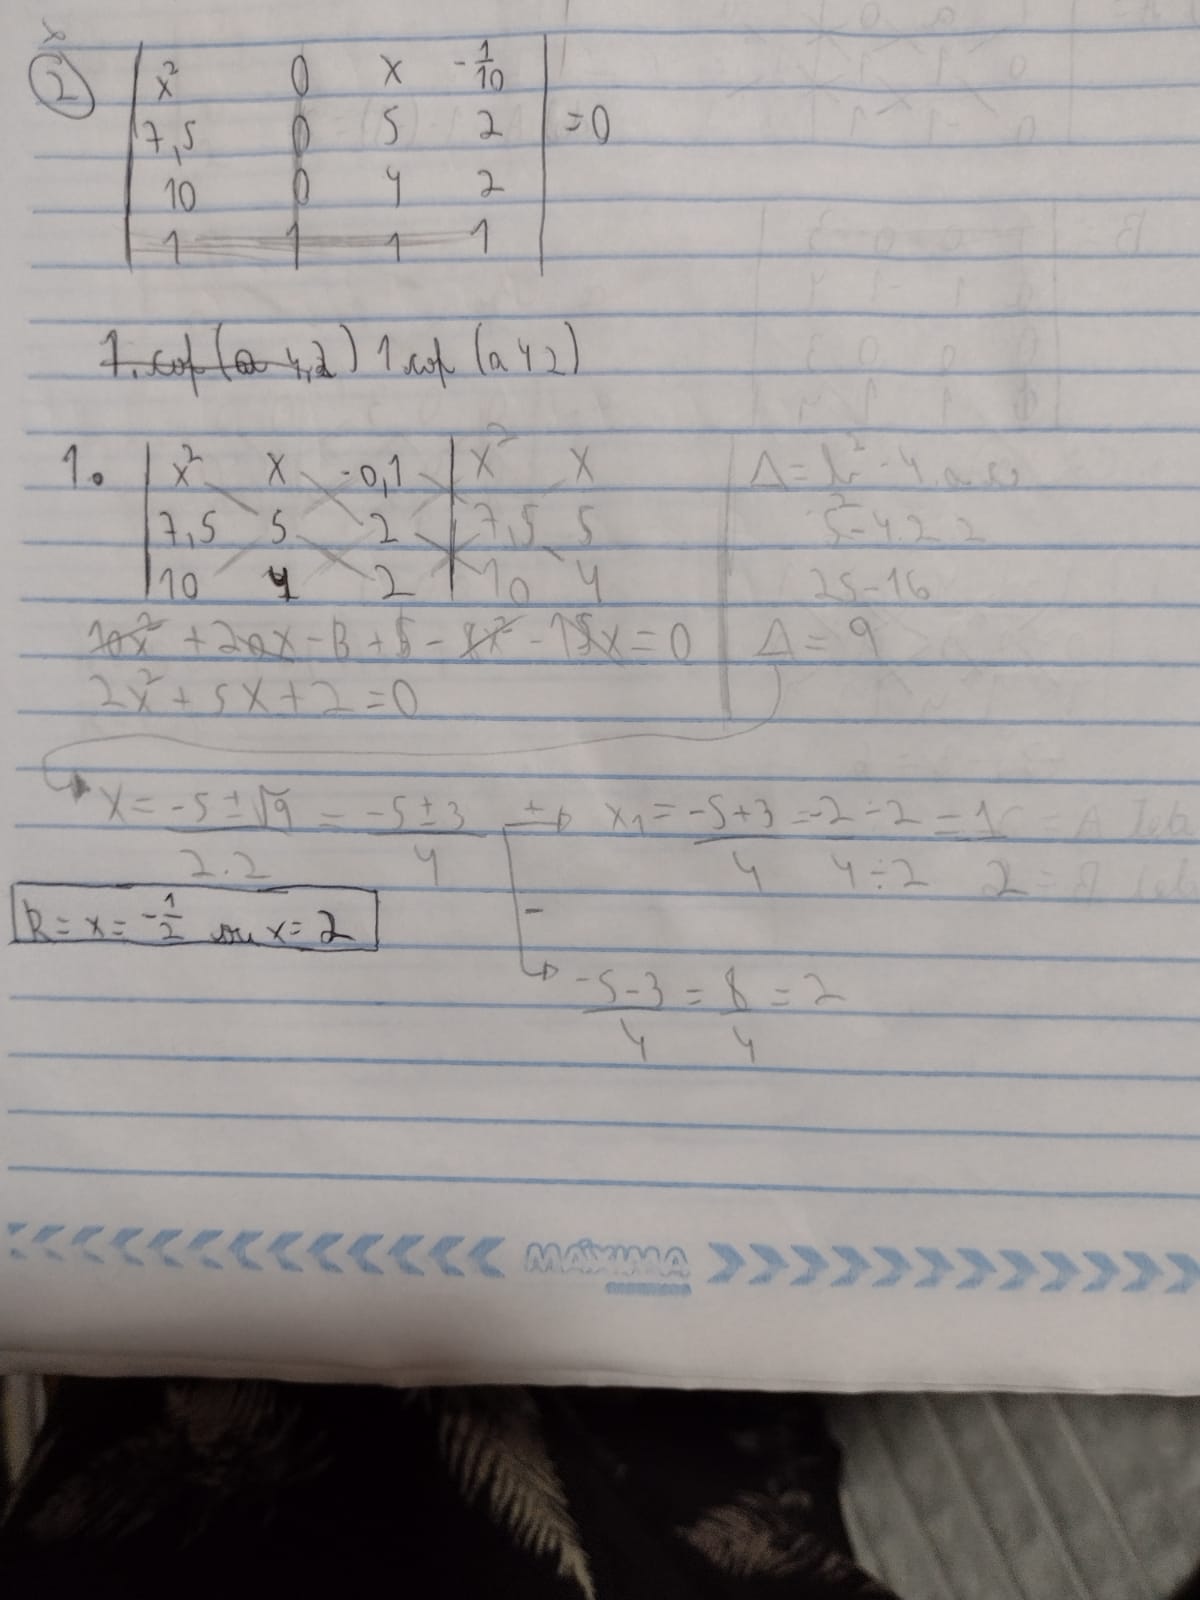 2
x² 0 x -1/10
7,5 0 5 2 =0
10 0 4 2
1 1 1 1
1.cof(a 4,2) 1 cof (a 4 2)
1. x² x -0,1 x² x
7,5 5 2 7,5 5
10 4 2 10 4
10x² + 20x - 3 + 5 - 8x² - 15x = 0
2x² + 5x + 2 = 0
Δ = b² - 4.a.c
5² - 4.2 2
25 - 16
Δ = 9
x = -5 ± √9 / 2.2 = -5 ± 3 / 4 + x₁ = -5+3 / 4 = -2 ÷ 2 / 4 ÷ 2 = 1 / 2
R = x = -1/2 ou x = 2
-
-5-3 / 4 = 8 / 4 = 2
MÁXIMA